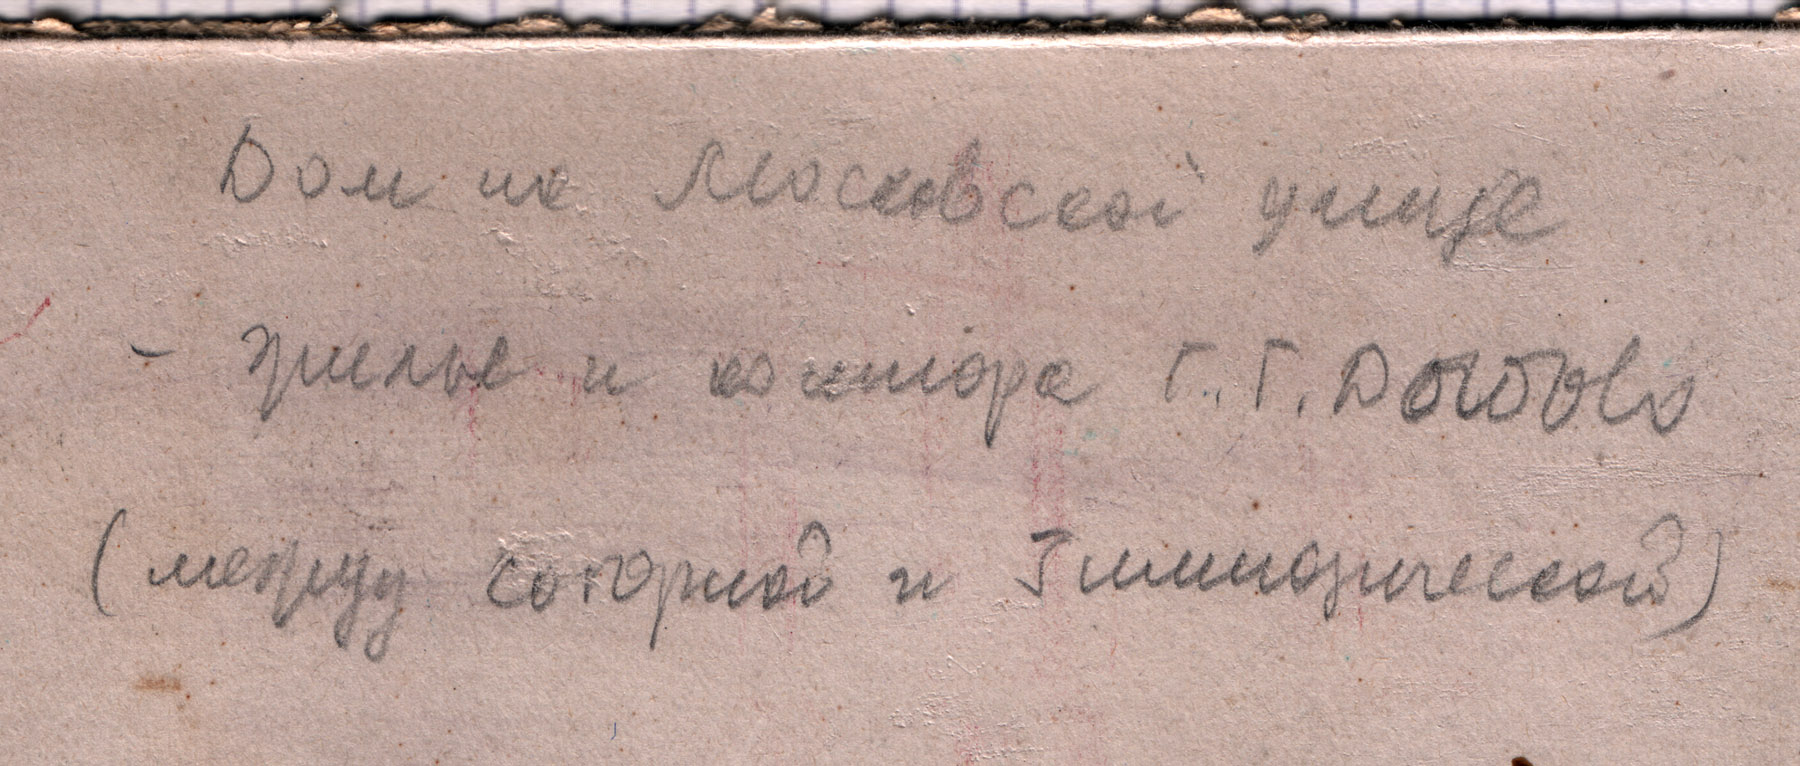 Дом на Московской улице
- жилье и контора Г. Г.
(между Соборной и Гимназической)